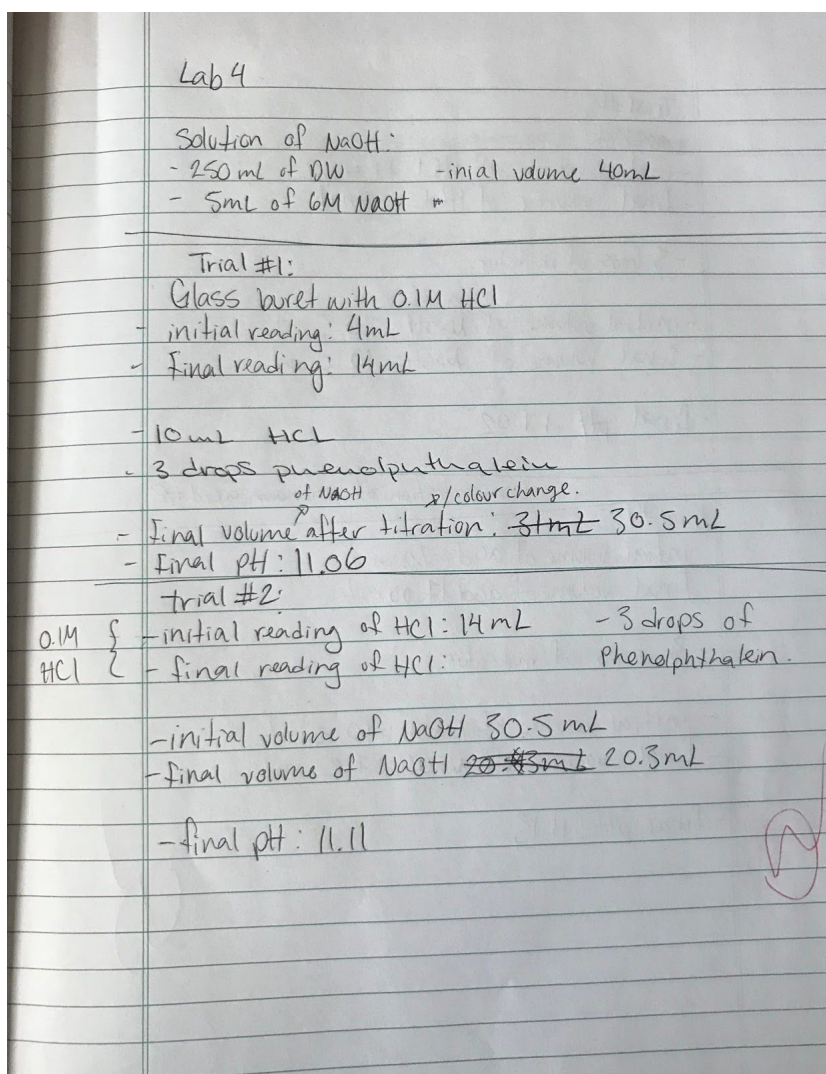 Lab 4
Solution of NaOH:
- 250 mL of DW -inial volume 40mL
- 5mL of 6M NaOH -
Trial #1:
Glass buret with 0.1M HCl
- initial reading: 4mL
- Final reading: 14mL
- 10 mL HCL
- 3 drops phenolputhalein
of NaOH /colour change.
- final volume after titration: 31mL 30.5mL
- Final pH: 11.06
trial #2:
0.1M { - initial reading of HCl: 14mL - 3 drops of
HCl { - final reading of HCl: Phenolphthalein.
- initial volume of NaOH 30.5mL
- final volume of NaOH 20.3mL
- final pH: 11.11